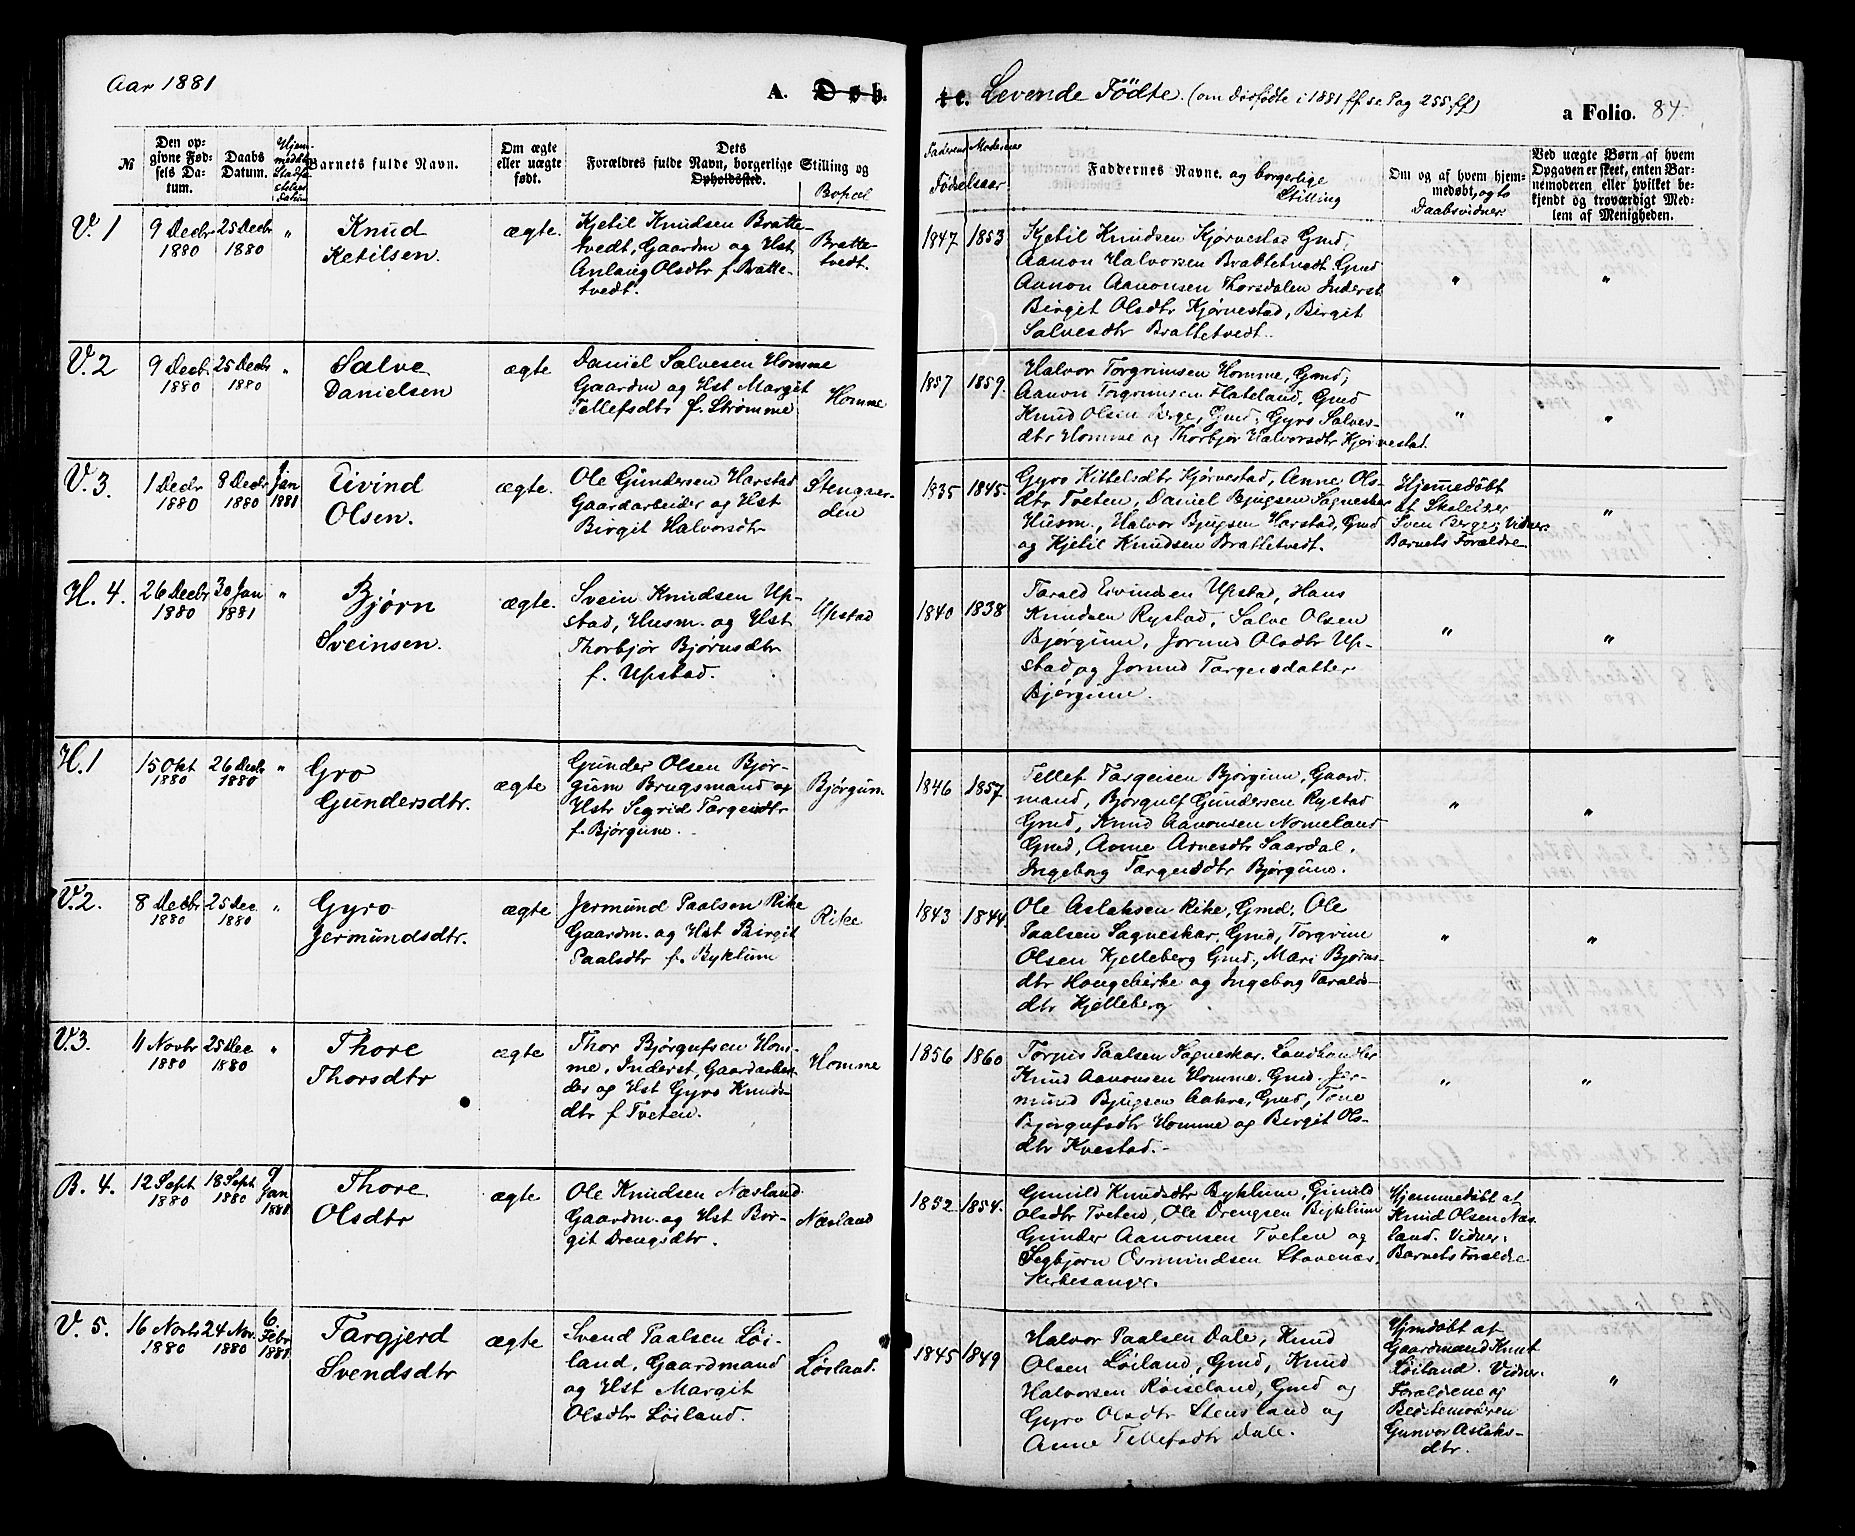 Aar 1881
A. Døb-
te. Levende Fødte. (om dødfødte i 1881 ff se Pag 255 ff)
a Folio. 84.
№
Den op-
givne Fød-
sels Da-
tum.
Daabs
Datum.
Barnets fulde Navn.
Om ægte
eller uægte
født.
Dets
Forældres fulde Navn, borgerlige Stilling og
Opholdssted.
Bopæl
Faderens Moderens
Fødselsaar
Faddernes Navne. og borgerlige
Stilling
Om og af hvem hjem-
medøbt, og to
Daabsvidner
Ved uægte Børn af hvem
Opgaven er skeet, enten Bar-
nemoderen eller hvilket be-
kjendt og troværdigt Med-
lem af Menigheden.
V. 1
9 Decbr
1880
25 Decbr
1880
"
Knud
Ketilsen.
ægte.
Kjetil Knudsen Bratte-
tvedt, Gaardm og Hst
Anlaug Olsdtr f. Bratte-
tvedt.
Bratte-
tvedt.
1847 1853
Kjetil Knudsen Kjørvestad Gmd,
Aanon Halvorsen Brattetvedt. Gmd
Aanon Aanonsen Thorsdalen Inderst
Birgit Olsdtr Kjørvestad, Birgit
Salvesdtr Brattetvedt.
"
"
V. 2
9 Decb.
1880
25 Decbr
1880
"
Salve
Danielsen
ægte
Daniel Salvesen Homme
Gaardm og Hst Margit
Tellefsdtr f. Strømme
Homme
1857 1859.
Halvor Torgrimsen Homme, Gmd,
Aanon Torgrimsen Flateland, Gmd
Knud Olsen Berge, Gmd, Gyro Salves-
dtr Homme og Thorbjør Halvorsdtr Kjørvestad.
"
"
V. 3.
1 Decbr
1880
8 Decbr
1880
Jan
1881
Eivind
Olsen.
ægte.
Ole Gundersen Harstad
Gaardarbeider og Hst
Birgit Halvorsdtr
1835 1845.
Gyro Kittelsdtr Kjørvestad, Anne Ols-
dtr Tveten, Daniel Bjugsen Sagneskar
Husm., Halvor Bjugsen Harstad, Gmd
og Kjetil Knudsen Brattetvedt.
Hjemmedøbt
af Skolelær
Sven Berge; Vidner:
Barnets Forældre.
"
H. 4.
26 Decbr
1880
30 Jan
1881
"
Bjørn
Sveinsen.
ægte.
Svein Knudsen Up-
stad, Husm. og Hst
Thorbjør Bjørnsdtr
f. Upstad.
Upstad
1840 1838
Tarald Eivindsen Upstad, Hans
Knudsen Rystad, Salve Olsen
Bjørgum, Jorund Olsdtr Up-
stad og Jorund Targeisdatter
Bjørgum.
"
"
H. 1
15 Okt
1880
26 Decbr
1880
"
Gro
Gundersdtr.
ægte
Gunder Olsen Bjør-
gum Brugsmand og
Hstr Sigrid Targeisdtr
f. Bjørgum.
Bjørgum.
1846 1857
Tellef Targeisen Bjørgum, Gaard-
mand, Bjørgulf Gundersen Rystad
Gmd, Knud Aanonsen Nomeland
Gmd, Anne Arvesdtr Saardal.
Ingeborg Targeisdtr Bjørgum.
"
"
V. 2.
8 Decbr
1880
25 Dec
1880
"
Gyro
Jermundsdtr.
ægte
Jermund Paalsen Rike
Gaardm. og Hst Birgit
Paalsdtr f. Byklum
Rike
1843 1844.
Ole Aslaksen Rike, Gmd, Ole
Paalsen Sagneskar, Gmd, Torgrim
Olsen Kjelleberg Gmd, Mari Bjørns-
dtr Haugebirke og Ingeborg Taralds-
dtr Kjelleberg
"
"
V. 3.
11 Novbr
1880
25 Dec
1880
"
Thore
Thorsdtr
ægte
Thor Bjørgufsen Hom-
me, Inderst, Gaardarbei-
der og Hst Gyro Knuds-
dtr f Tveten.
Homme
1856 1860
Torjus Paalsen Sagneskar. Landhandler
Knud Aanonsen Homme. Gmd. Jer-
mund Bjugsen Aakre, Gmd, Tone
Bjørgufsdtr Homme og Birgit Ols-
dtr Kvestad.
"
"
B. 4.
12 Sept
1880
18 Sept
1880
9
Jan
1881
Thore
Olsdtr
ægte
Ole Knudsen Næsland
Gaardm. og Hst Bor-
git Drengsdtr.
Næsland
1852 1854.
Gunild Knudsdtr Byklum, Gunild
Olsdtr Tveten, Ole Drengsen Byklum
Gunder Aanonsen Tveten og
Sigbjørn Osmundsen Stavenæs,
Kirkesanger.
Hjemmedøbt af
Knud Olsen Næs-
land. Vidner:
Barnets Forældre
V. 5.
16 Novbr
1880
24 Nov.
1880
6
Febr
1881
Targjerd
Svendsdtr
ægte
Svend Paalsen Løi-
land, Gaardmand
og Hst Margit
Olsdtr Løiland.
Løiland.
1845 1849
Halvor Paalsen Dale, Knud
Olsen Løiland, Gmd, Knud
Halvorsen Røiseland, Gmd og
Gyro Olsdtr Stensland og
Anne Tellefsdtr Dale.
Hjmdøbt af
Gaardmand Knut
Løiland. Vidner:
Forældrene og
Bedstemoderen
Gunvor Aslaks-
dtr.
"